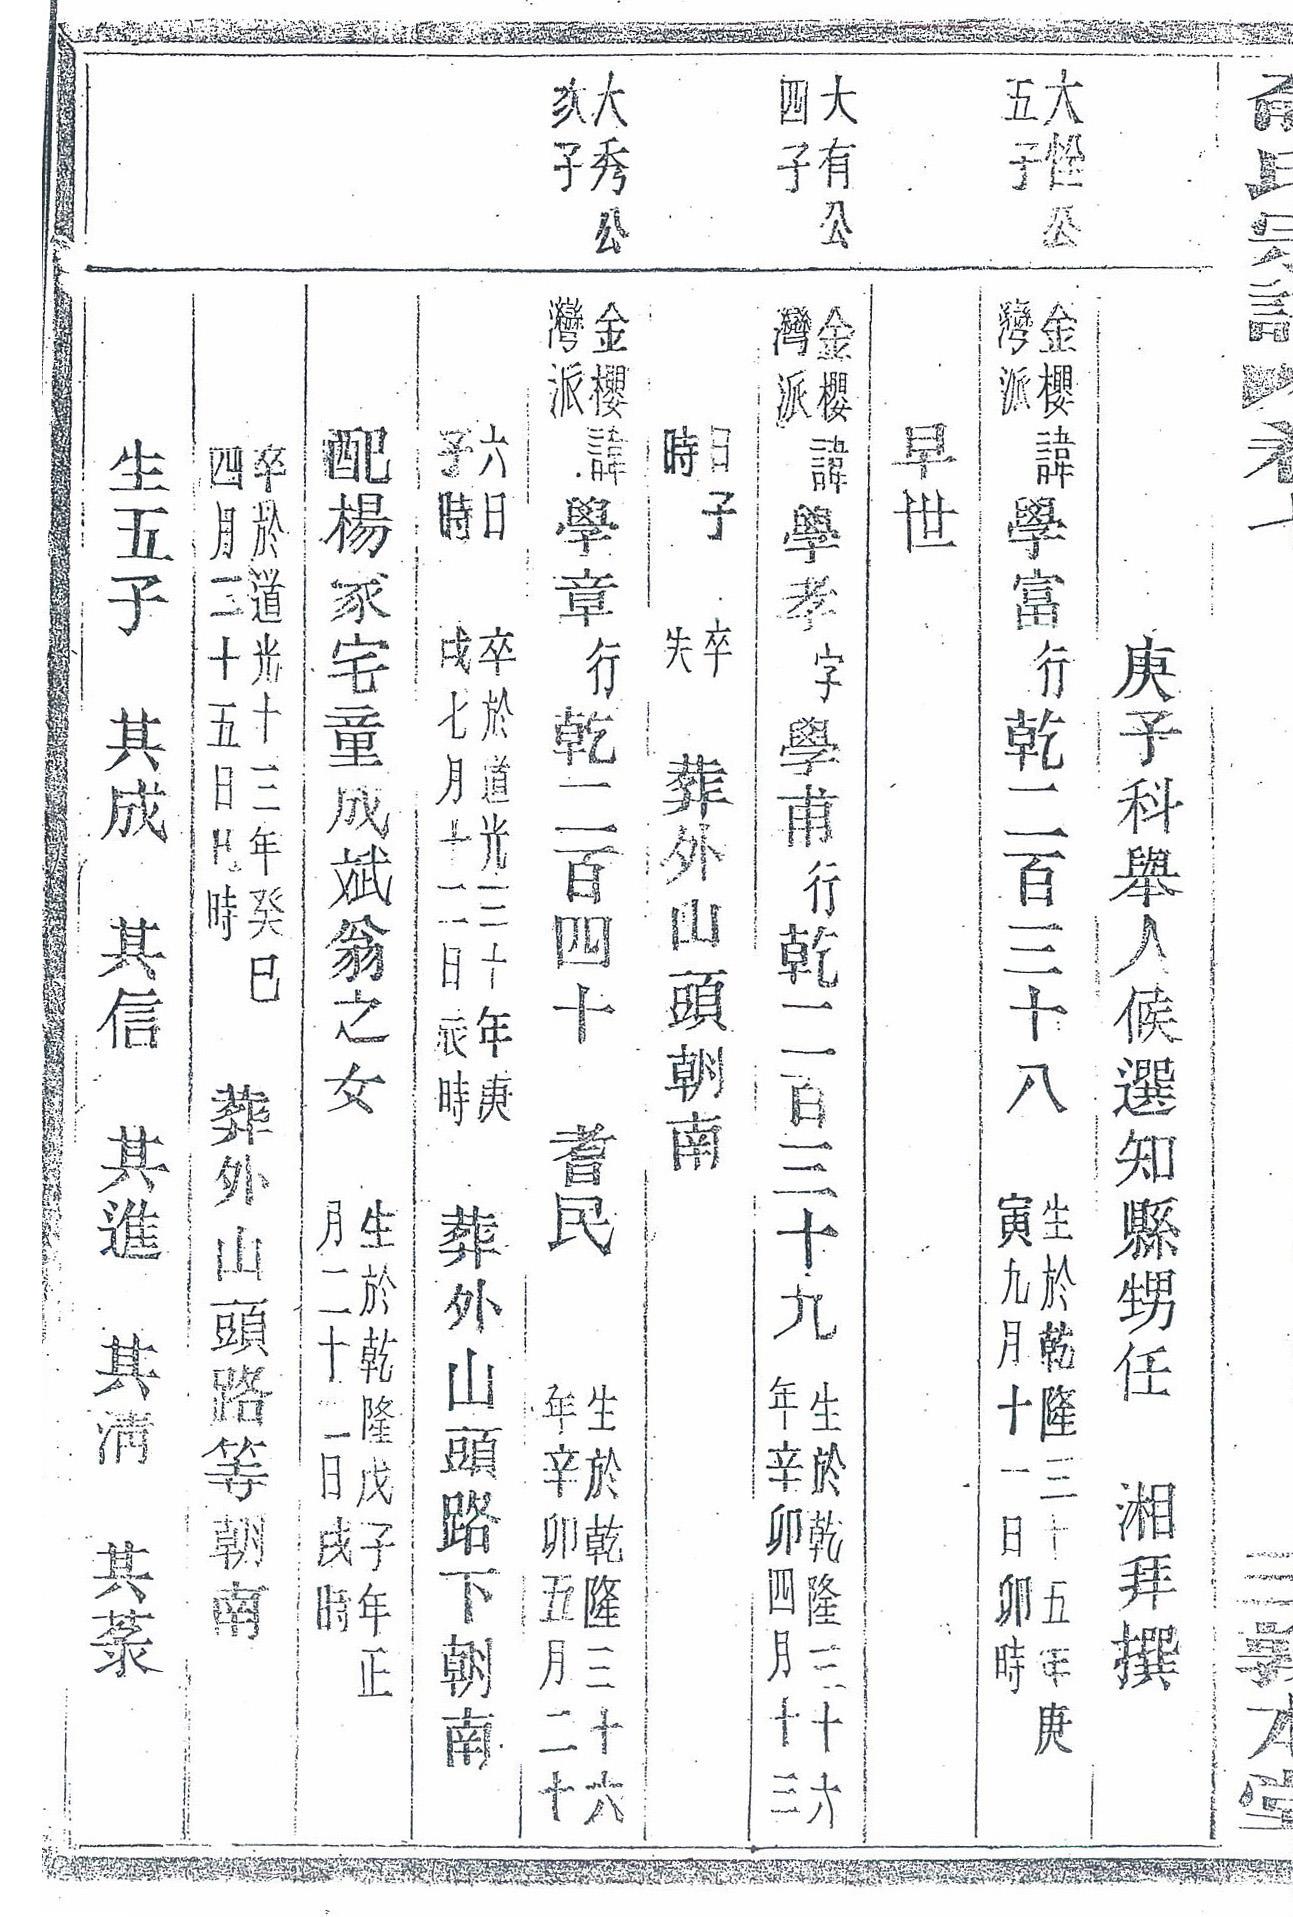 庚子科舉人候選知縣甥任　湘拜撰
大㤚公
五子
金櫻
灣派
諱學富行乾二百三十八　生於乾隆三十五年庚
寅九月十一日卯時
早世
大有公
四子
金櫻
灣派
諱學孝字學甫行乾二百三十九　生於乾隆三十六
年辛卯四月十三
日子
時　卒
失　葬外山頭朝南
大秀公
次子
金櫻
灣派
諱學章行乾二百四十　耆民　生於乾隆三十六
年辛卯五月二十
六日
子時　卒於道光三十年庚
戌七月十二日辰時　葬外山頭路下朝南
配楊家宅童成斌翁之女　生於乾隆戊子年正
月二十二日戌時
卒於道光十三年癸巳
四月二十五日時　葬外山頭路等朝南
生五子　其成　其信　其進　其清　其菉